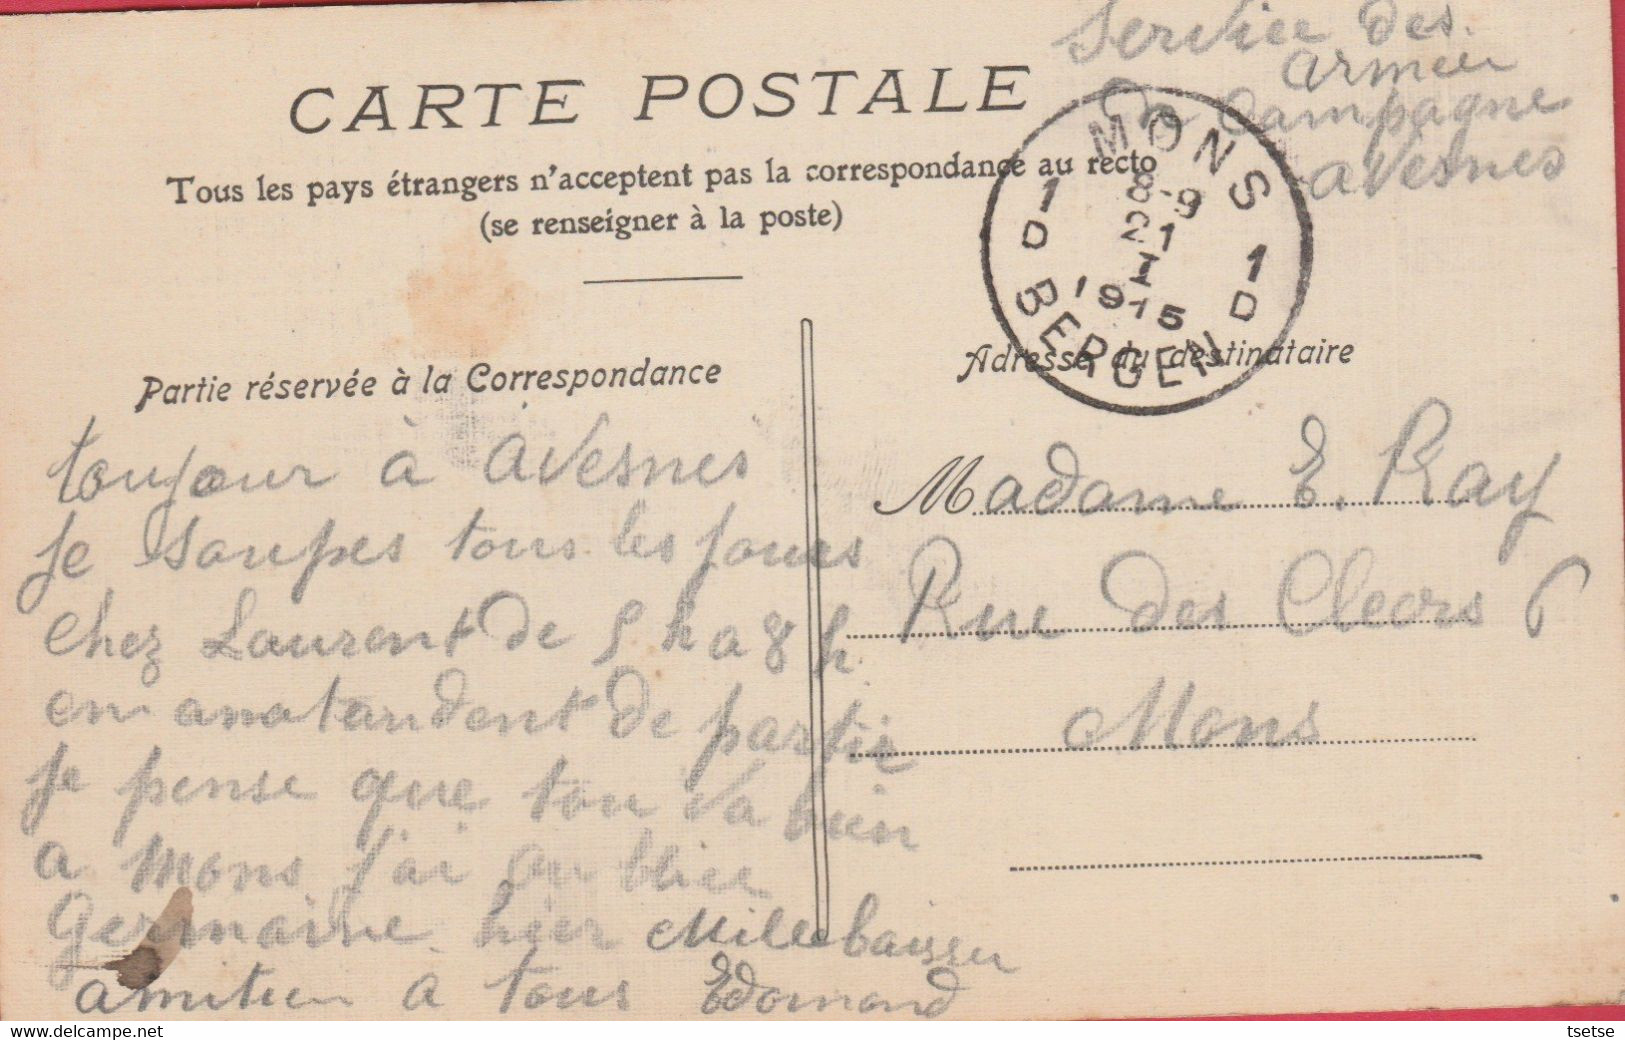 Service des
Armeer
en Campagne
avesnes
CARTE POSTALE
Tous les pays étrangers n'acceptent pas la correspondance au recto
(se renseigner à la poste)
MONS
1 D 8-9 1 D
21
I
1915
BERGEN
Partie réservée à la Correspondance
Adresse du destinataire
toujour à avesnes
je soupes tous les jours
chez Laurent de 5 h a 8 h
en anatandent de partir
je pense que tou va bien
a Mons j'ai ou blier
Germaine hier Mille baisser
amitier à tous Edomond
Madame E. Ray
Rue des Clecrs 6
Mons
tsetse